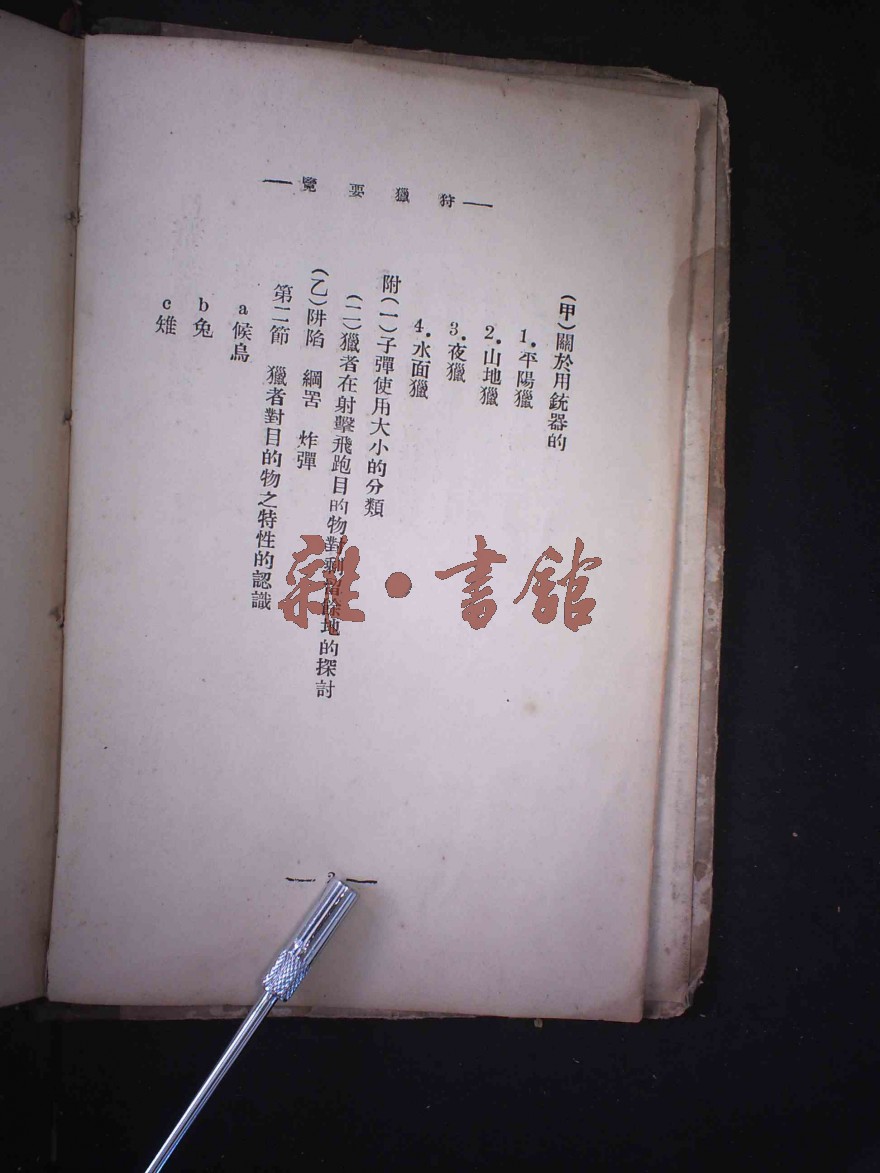 狩獵要覽
(甲)關於用銃器的
1.平陽獵
2.山地獵
3.夜獵
4.水面獵
附(一)子彈使用大小的分類
(二)獵者在射擊飛跑目的物對剩留餘地的探討
(乙)阱陷 綱罟 炸彈
第二節 獵者對目的物之特性的認識
a候鳥
b兔
c雉
2
雜·書館